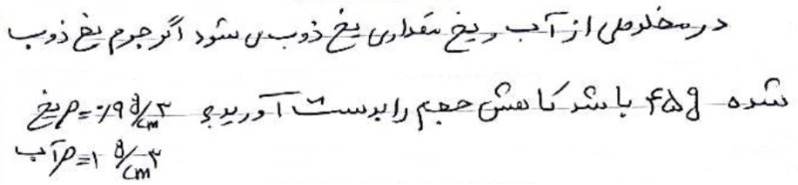 در مخلوطی از آب و یخ مقداری یخ ذوب می شود اگر جرم یخ ذوب
شده ۴۵g باشد کاهش حجم را بدست آورید؟ یخ ρ=۰/۹ g/cm۳
آب ρ=۱ g/cm۳